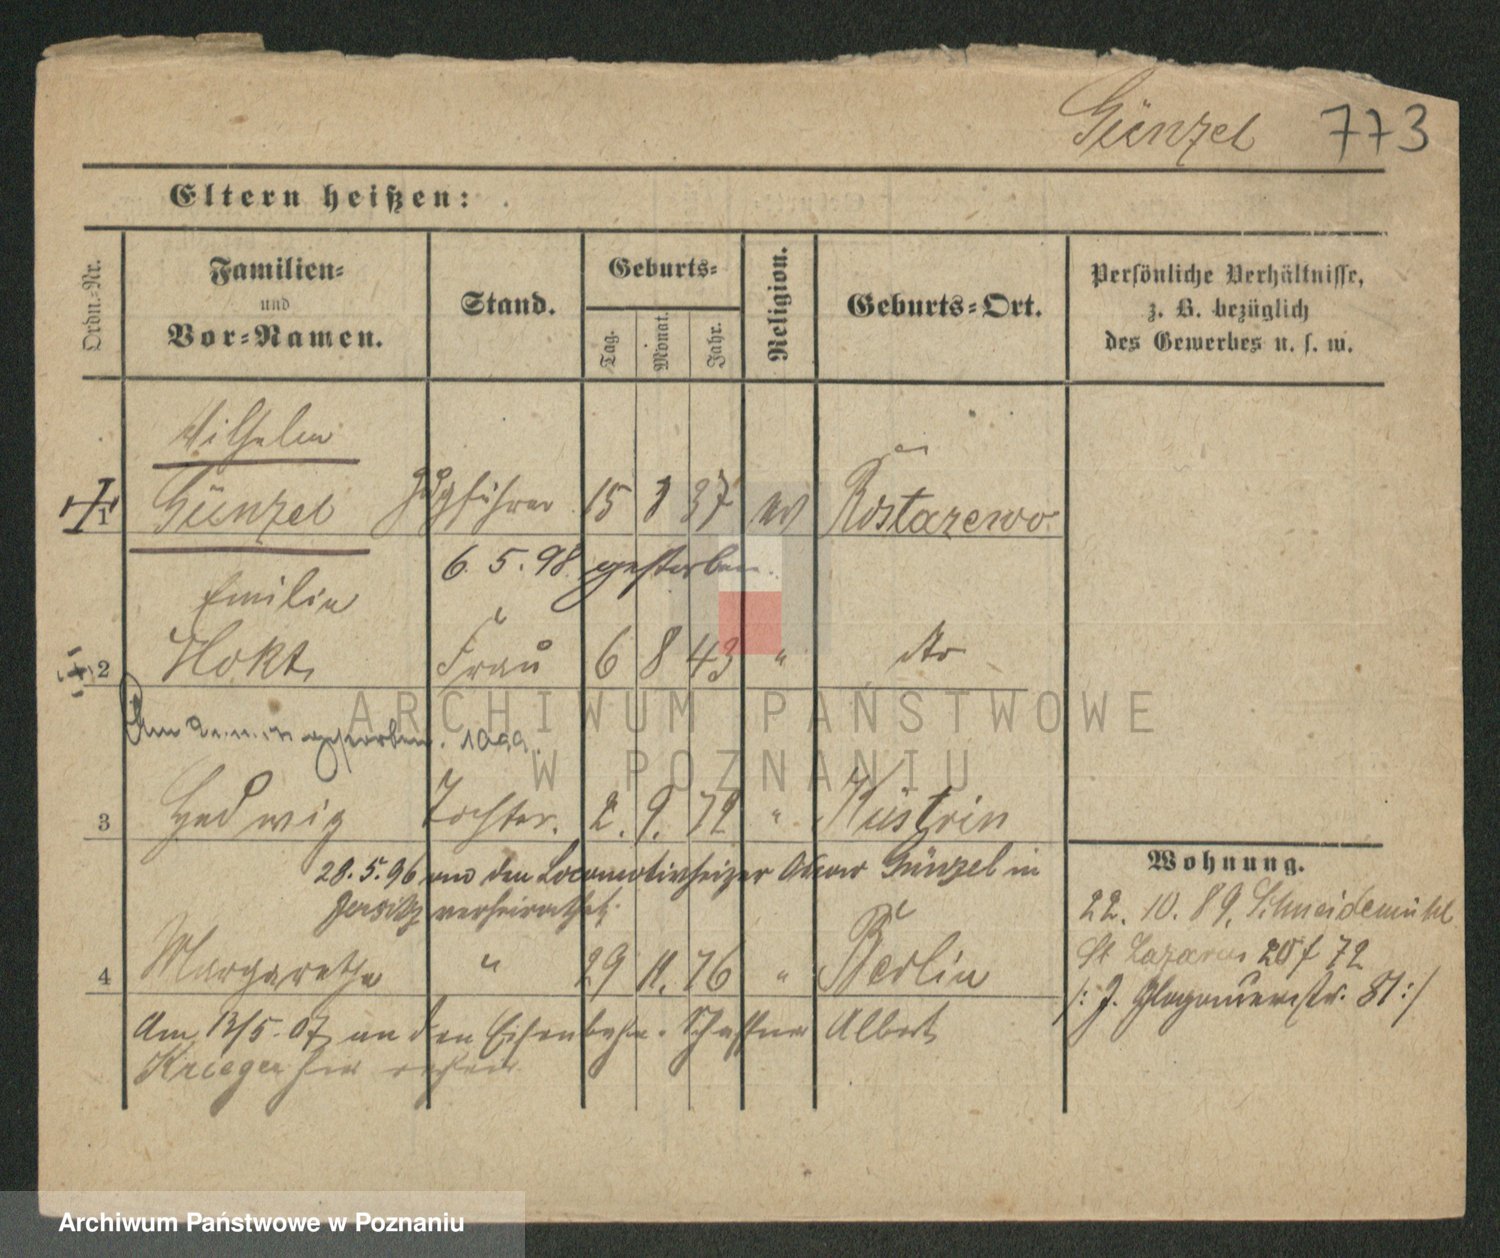 Günzel 773
Eltern heißen:
Ordn.-Nr.
Familien-
und
Vor-Namen.
Stand.
Geburts-
Tag.
Monat.
Jahr.
Religion.
Geburts-Ort.
Persönliche Verhältnisse,
z. B. bezüglich
des Gewerbes u. s. w.
Wilhelm
1 Günzel Zugführer 15 3 37 ev Rostarzewo
6.5.98 gestorben.
Emilie
2 Frau 6 8 43 " dto
Am gestorben.
3 Hedwig Tochter. 2. 9. 72 " Küstrin
28.5.96 an den Locomotivheizer Günzel in
Jersitz verheirathet.
4 Margarethe " 29 11. 76 " Berlin
Am 13/5.07 an den Eisenbahn-Schaffner Albert
Krieger
Wohnung.
22. 10. 89. Schneidemühl
St Lazarus 72
/: J. Glogauerstr. 81 :/
ARCHIWUM PAŃSTWOWE
W POZNANIU
Archiwum Państwowe w Poznaniu